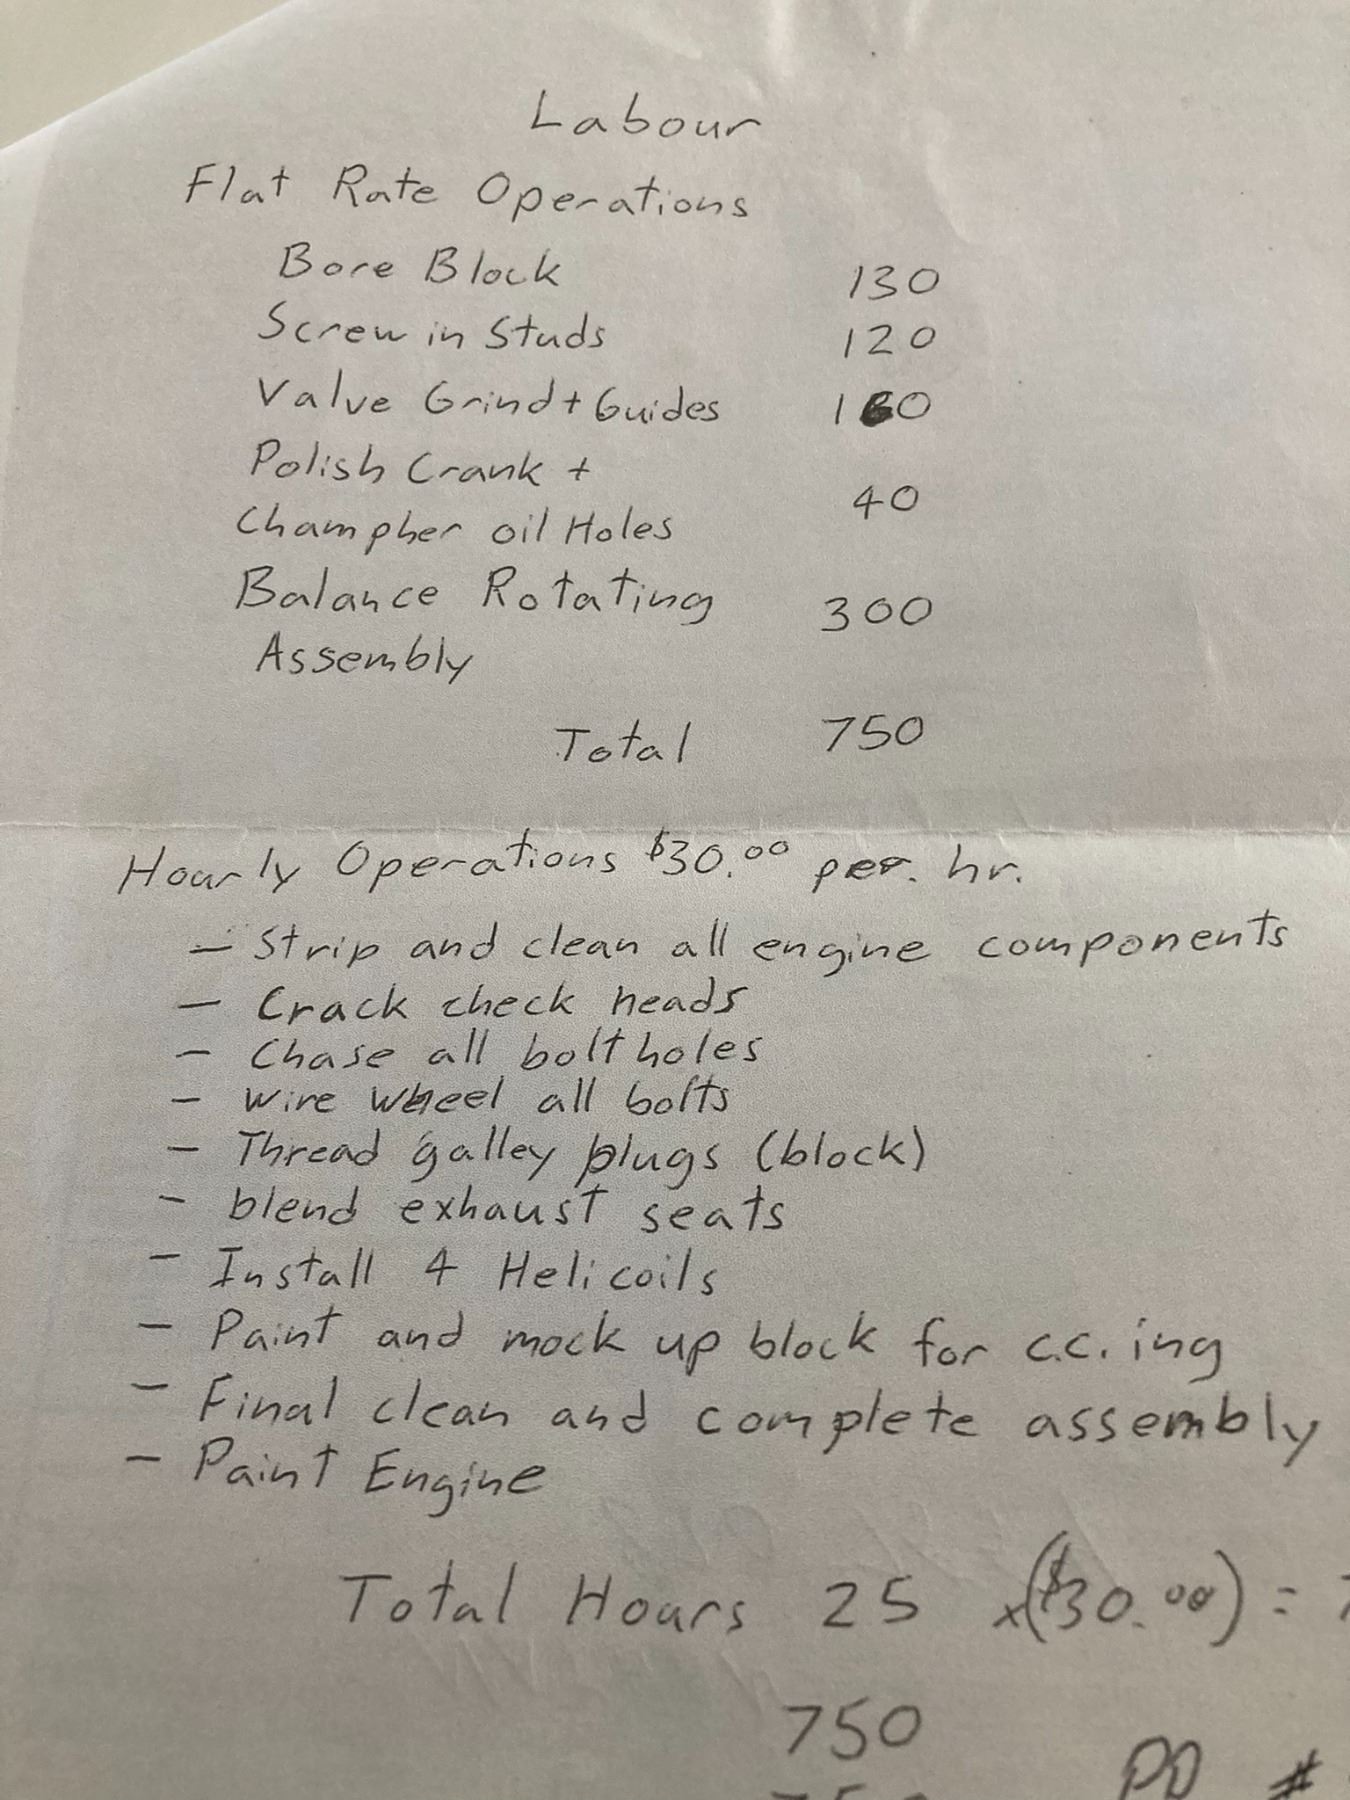 Labour
Flat Rate Operations
Bore Block 130
Screw in Studs 120
Valve Grind + Guides 160
Polish Crank +
Champher oil Holes 40
Balance Rotating 300
Assembly
Total 750
Hourly Operations $30.00 per. hr.
- Strip and clean all engine components
- Crack check heads
- Chase all bolt holes
- wire wheel all bolts
- Thread galley plugs (block)
- blend exhaust seats
- Install 4 Helicoils
- Paint and mock up block for c.c. ing
- Final clean and complete assembly
- Paint Engine
Total Hours 25 x($30.00) =
750
PO #